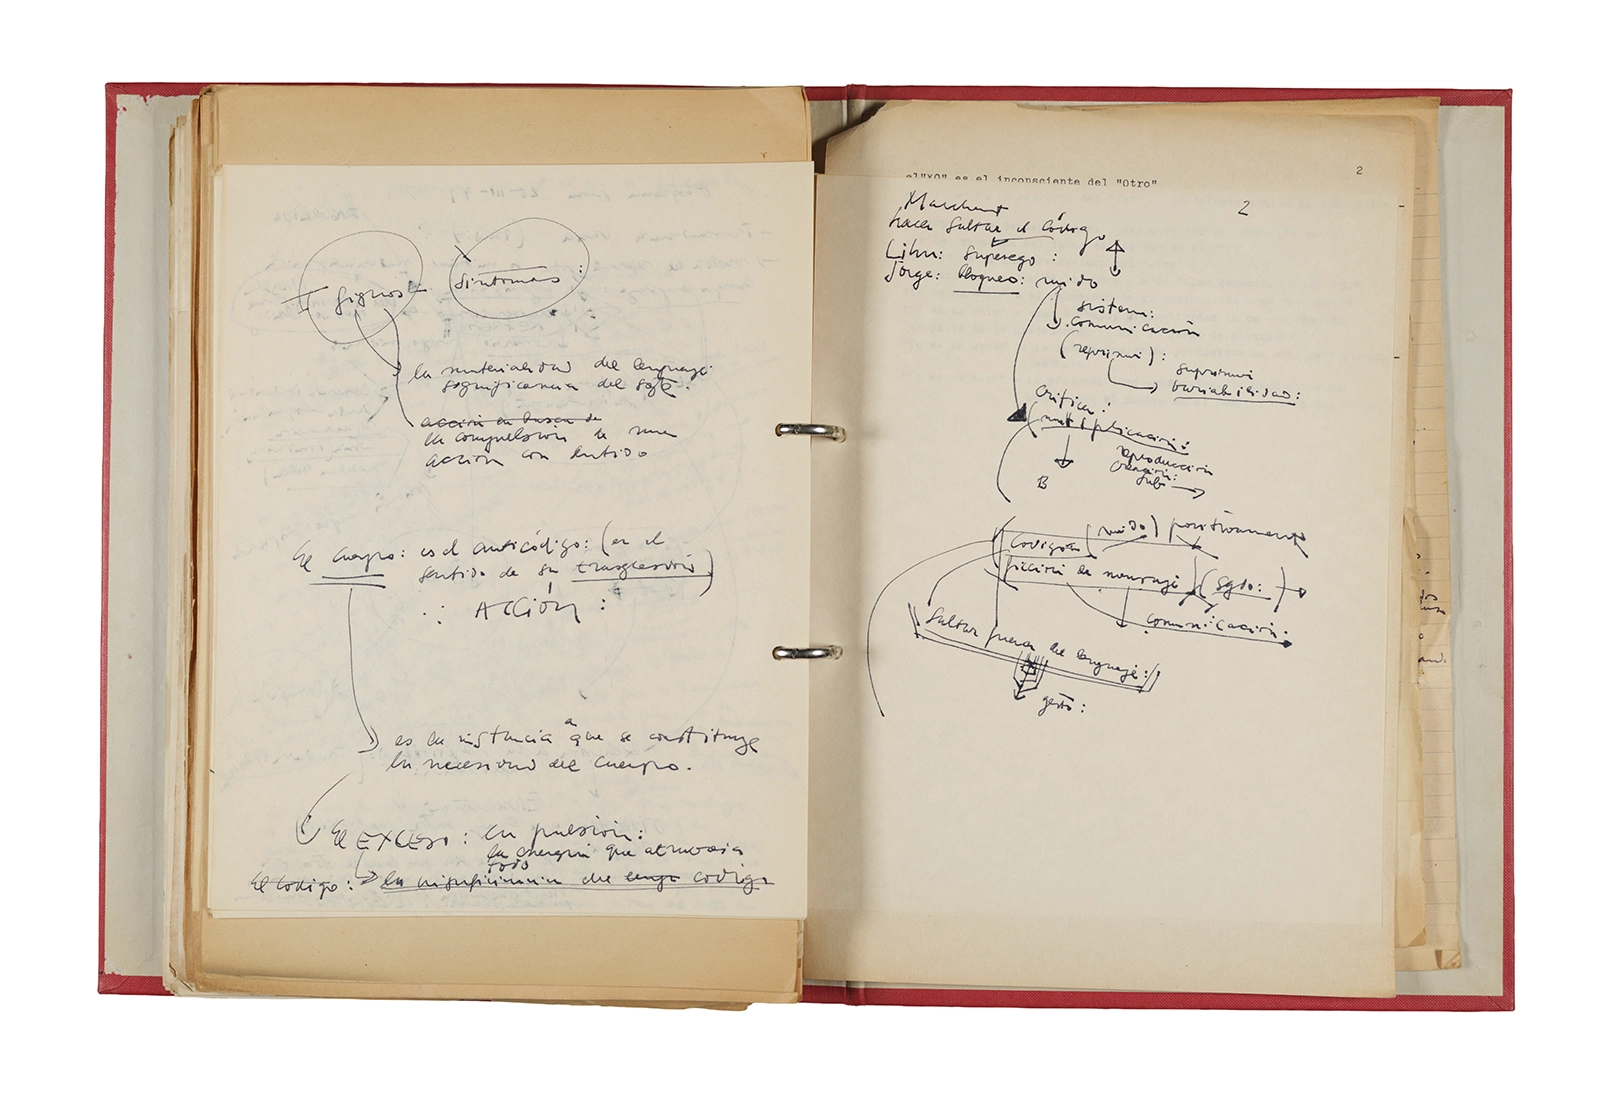 signos síntomas:
la materialidad del lenguaje:
significancia del sgte.
acción en busca de
la compulsión de una
acción con sentido
El cuerpo: es el anticódigo: (en el
sentido de su trasgresión)
∴ ACCIÓN:
es la instancia a que se constituye
la necesidad del cuerpo.
El EXCESO: la pulsión:
la energía que atraviesa
todo
El código: la insuficiencia del código
2
el "YO" es el inconsciente del "Otro"
2
Marchant
hacer saltar el código
Lihn: superego:
Jorge: bloqueo: ruido
sistema:
comunicación
(reprimir):
suprimir
variabilidad:
crítica:
(multiplicación:
reproducción
creación:
sub
B
código (ruido) positivamente
ficción de mensaje (sgdo:)
comunicación.
Saltar fuera del lenguaje:
gesto: